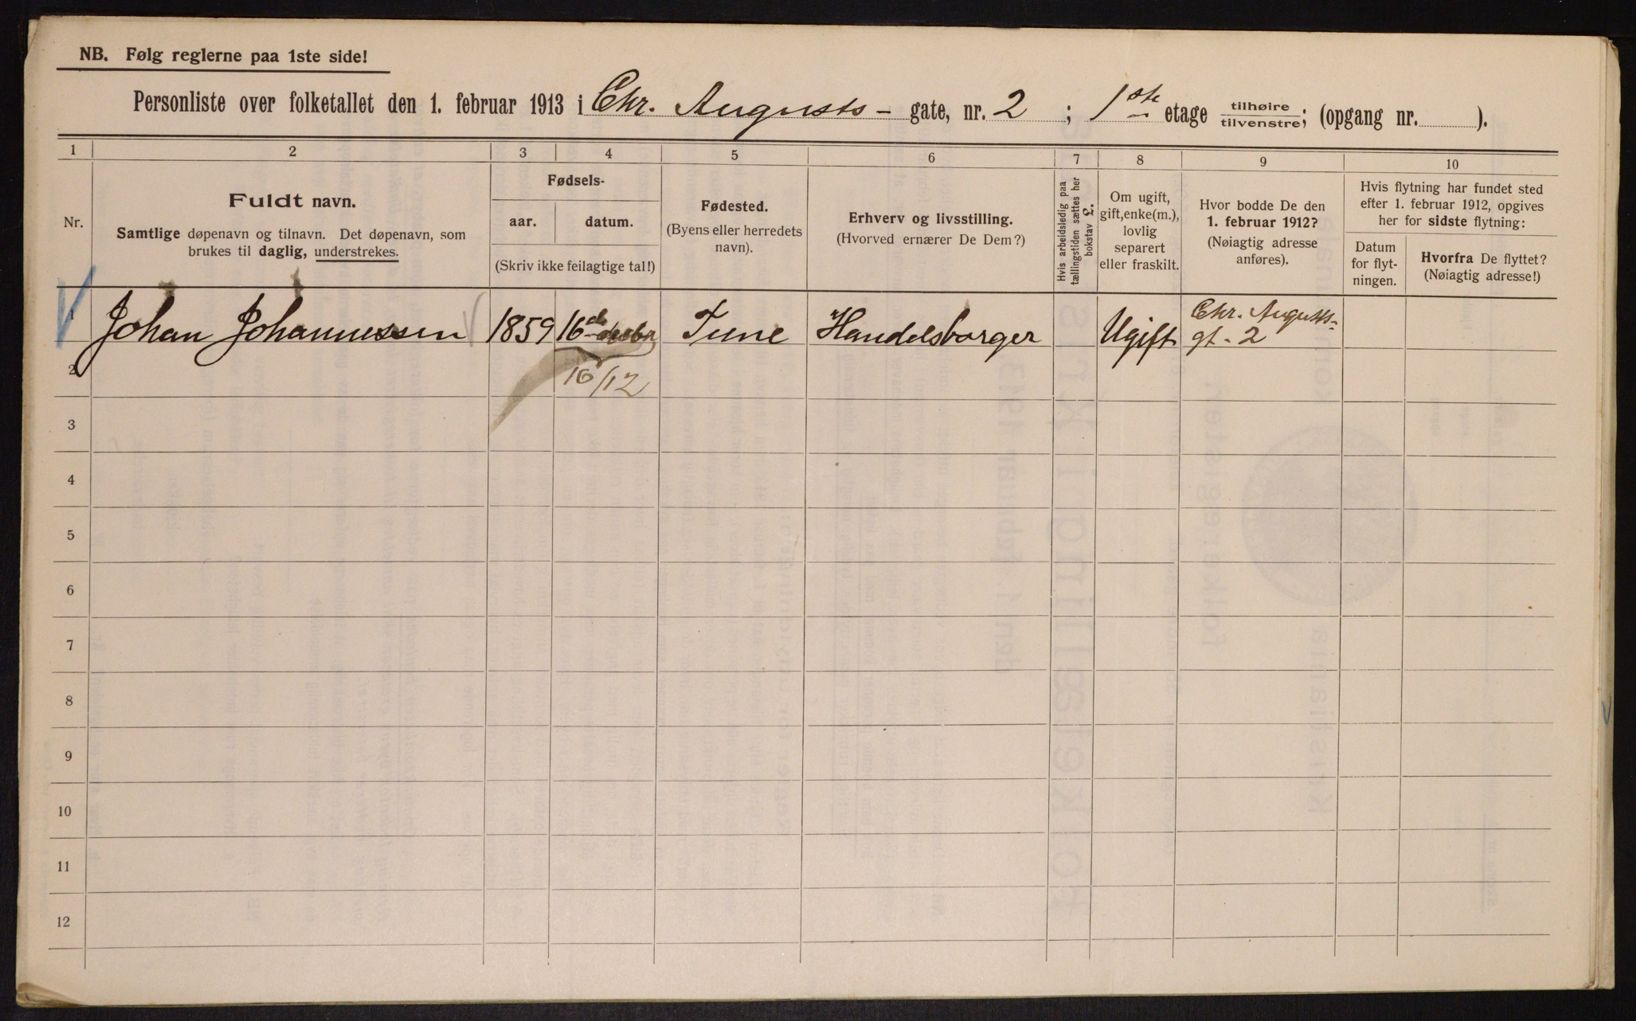 NB. Følg reglerne paa 1ste side!
Personliste over folketallet den 1. februar 1913 i Chr. Augusts - gate, nr. 2 ; 1ste etage tilhøire tilvenstre; (opgang nr. ).
1 2 3 4 5 6 7 8 9 10
Nr.
Fuldt navn.
Samtlige døpenavn og tilnavn. Det døpenavn, som
brukes til daglig, understrekes.
Fødsels-
aar. datum.
(Skriv ikke feilagtige tal!)
Fødested.
(Byens eller herredets
navn).
Erhverv og livsstilling.
(Hvorved ernærer De Dem?)
Hvis arbeidsledig paa
tællingstiden sættes her
bokstav £.
Om ugift,
gift, enke(m.),
lovlig
separert
eller fraskilt.
Hvor bodde De den
1. februar 1912?
(Nøiagtig adresse
anføres).
Hvis flytning har fundet sted
efter 1. februar 1912, opgives
her for sidste flytning:
Datum
for flyt-
ningen.
Hvorfra De flyttet?
(Nøiagtig adresse!)
1 Johan Johannessen 1859 16de Tune Handelsborger Ugift Chr. Augusts-
gt. 2
2 16/12
3
4
5
6
7
8
9
10
11
12